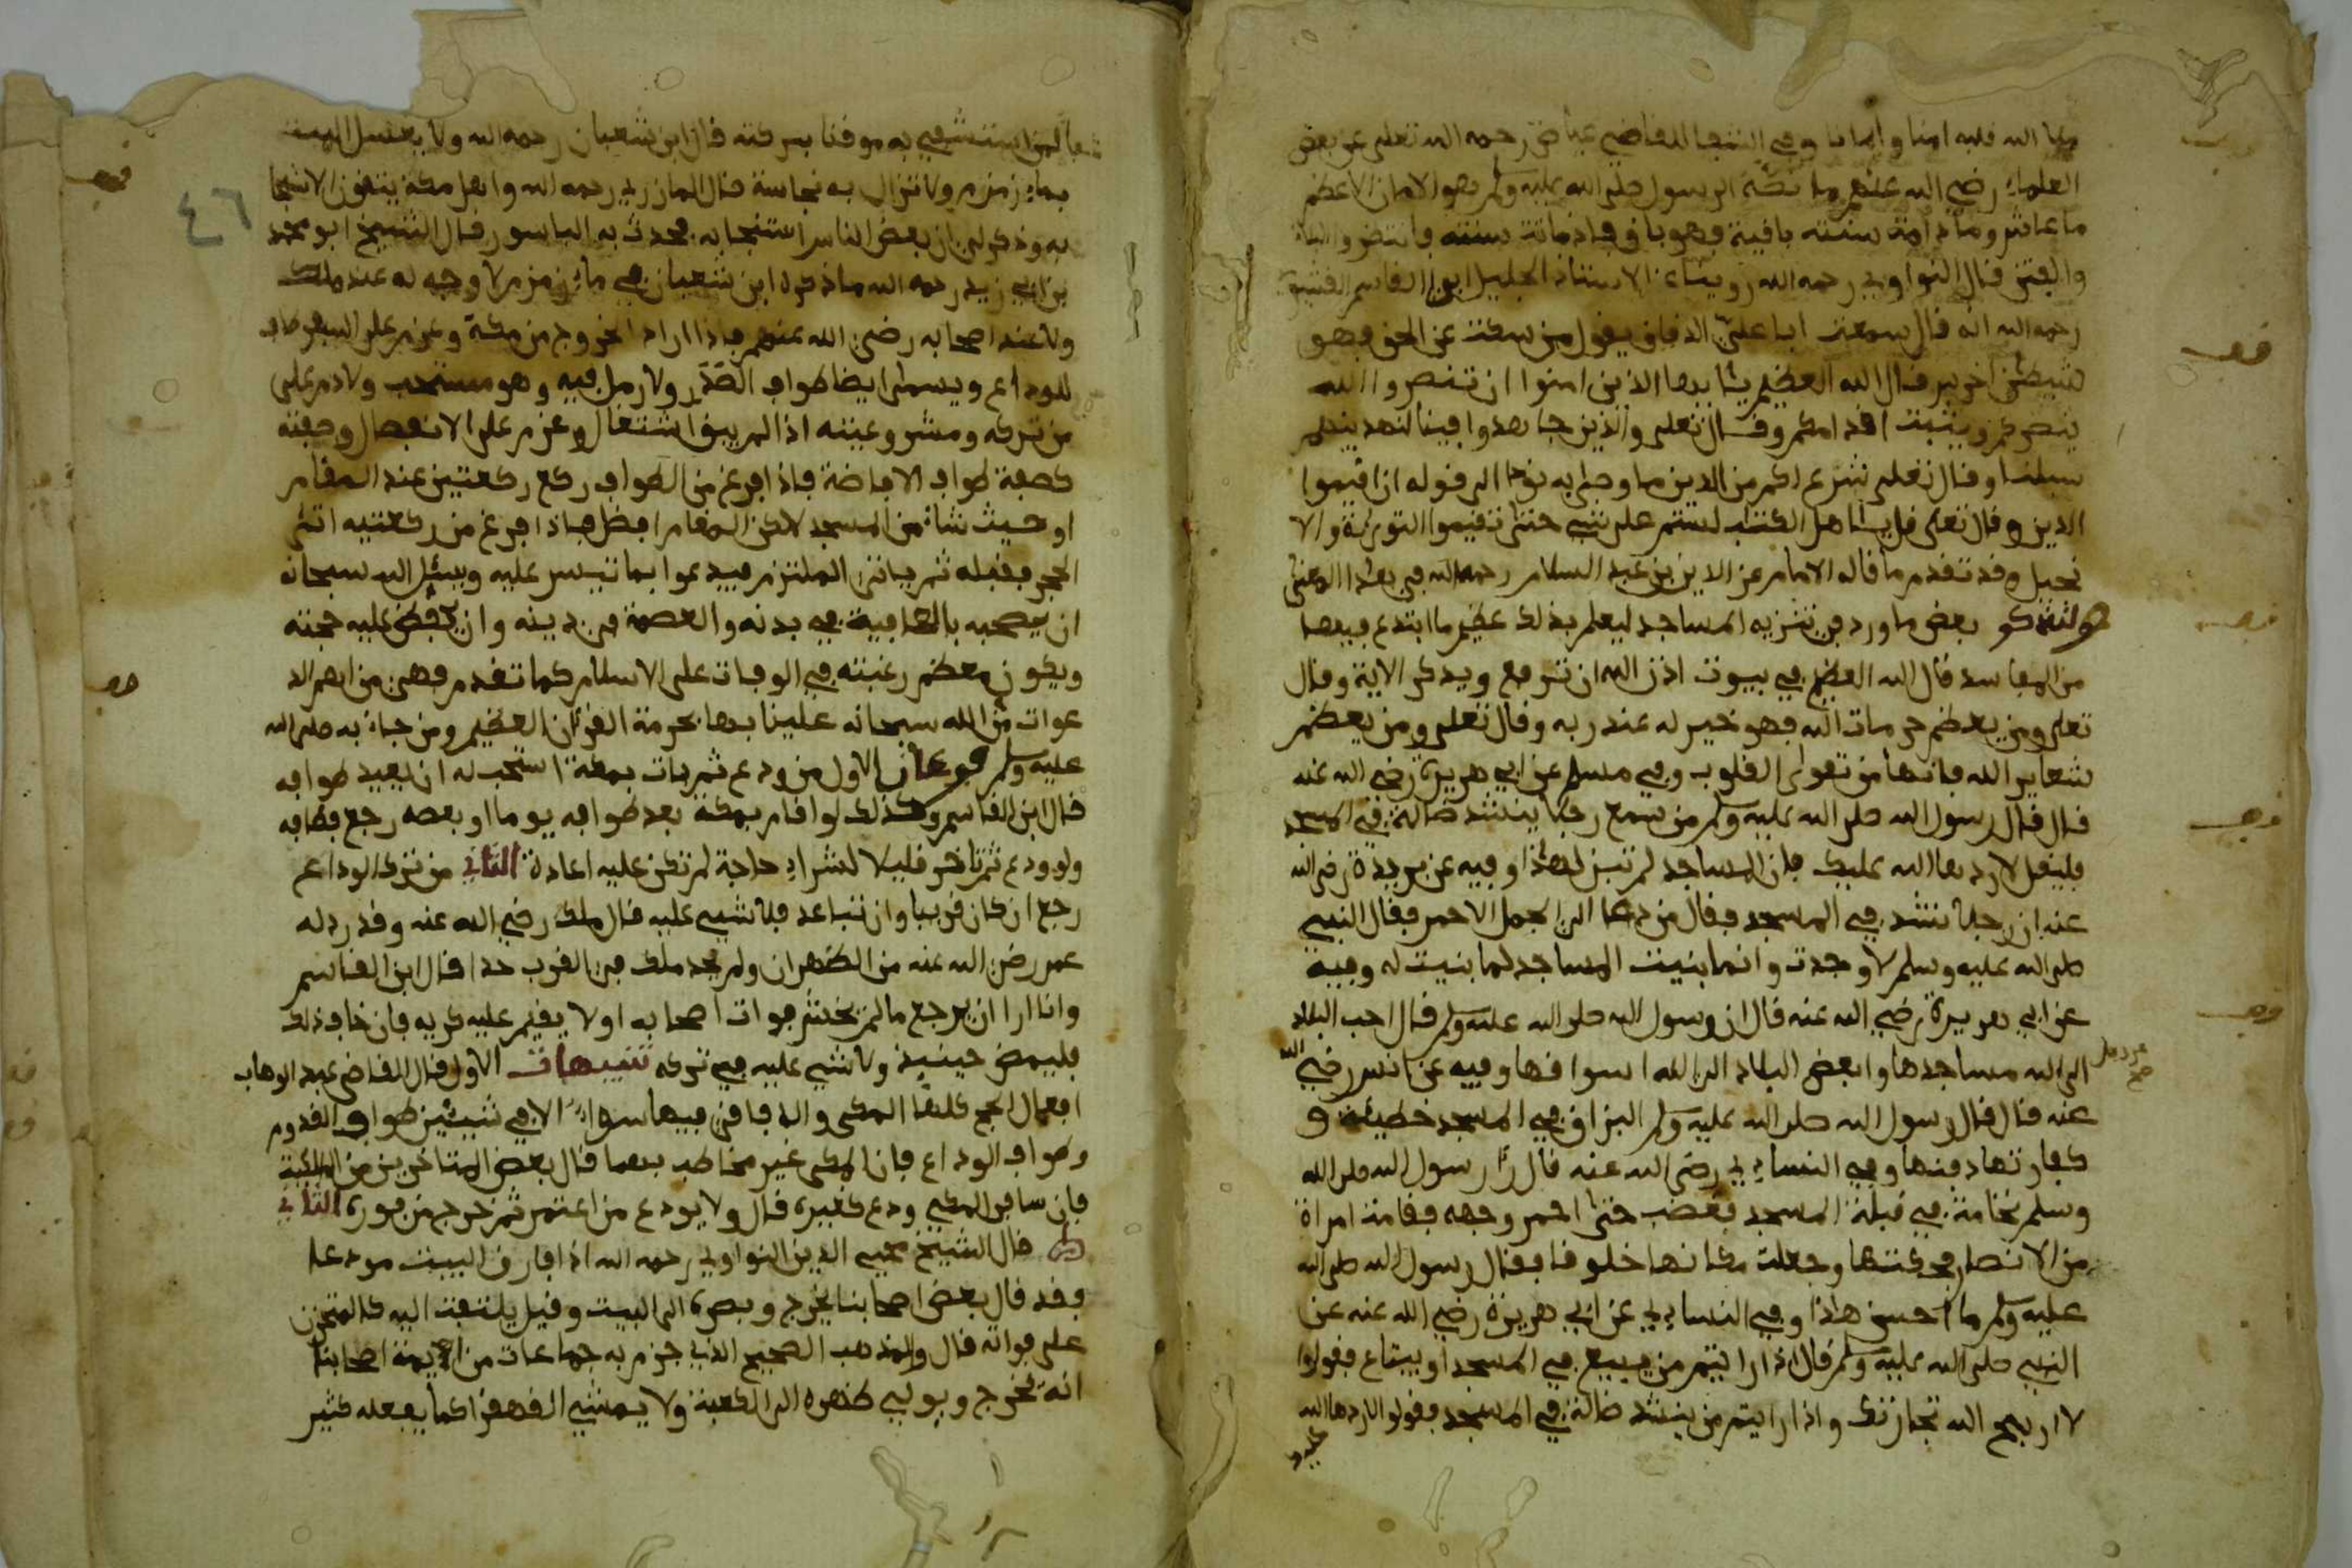 ملا الله قلبه امنا وايمانا وفي الشفا للقاضي عياض رحمه الله تعلى عن بعض
العلماء رضي الله عنهم ما نصه الرسول صلى الله عليه وسلم هو الامان الاعظم
ما عاش وما دامت سنته باقية فهو باق فاذا ماتت سنته فانتظروا البلاء
والفتن قال النواوي رحمه الله روينا عن الاستاذ الجليل ابي القاسم القشيري
رحمه الله انه قال سمعت ابا علي الدقاق يقول من سكت عن الحق فهو
شيطن اخرس قال الله العظيم يايها الذين امنوا ان تنصروا الله
ينصركم ويثبت اقدامكم وقال تعلى والذين جاهدوا فينا لنهدينهم
سبلنا وقال تعلى شرع لكم من الدين ما وصى به نوحا الى قوله ان اقيموا
الدين وقال تعلى قل ياهل الكتب لستم على شيء حتى تقيموا التورية والا
نجيل وقد تقدم ما قاله الامام عز الدين بن عبد السلام رحمه الله في هذا المعنى
ولنذكر بعض ما ورد في تنزيه المساجد ليعلم بذلك عظيم ما ابتدع فيها
من المفاسد قال الله العظيم في بيوت اذن الله ان ترفع ويذكر الاية وقال
تعلى ومن يعظم حرمات الله فهو خير له عند ربه وقال تعلى ومن يعظم
شعاير الله فانها من تقوى القلوب وفي مسلم عن ابي هريرة رضي الله عنه
قال قال رسول الله صلى الله عليه وسلم من سمع رجلا ينشد ضالة في المسجد
فليقل لا ردها الله عليك فان المساجد لم تبن لهذا وفيه عن بريدة رضي الله
عنه ان رجلا نشد في المسجد فقال من دعا الى الجمل الاحمر فقال النبي
صلى الله عليه وسلم لا وجدت وانما بنيت المساجد لما بنيت له وفيه
عن ابي هريرة رضي الله عنه قال ان رسول الله صلى الله عليه وسلم قال احب البلاد
الى الله مساجدها وابغض البلاد الى الله اسواقها وفيه عن انس رضي الله
عنه قال قال رسول الله صلى الله عليه وسلم البزاق في المسجد خطيئة و
كفارتها دفنها وفي النسايي رضي الله عنه قال رءا رسول الله صلى الله
وسلم نخامة في قبلة المسجد فغضب حتى احمر وجهه فقامت امراة
من الانصار فحكتها وجعلت مكانها خلوقا فقال رسول الله صلى الله
عليه وسلم ما احسن هاذا وفي النسايي عن ابي هريرة رضي الله عنه عن
النبي صلى الله عليه وسلم قال اذا رايتم من يبيع في المسجد او يبتاع فقولوا
لا اربح الله تجارتك واذا رايتم من ينشد ضالة في المسجد فقولوا لا ردها الله
عليك
٤٦
لمن استشفي به موقنا ببركته قال ابن شعبان رحمه الله ولا يغسل الميت
بماء زمزم ولا تزال به نجاسة قال المازري رحمه الله واهل مكة يتقون الاستنجا
به وذكر لي ان بعض الناس استنجا به فحدث به الباسور قال الشيخ ابو محمد
بن ابي زيد رحمه الله ما ذكره ابن شعبان في ماء زمزم لا وجه له عند ملك
ولا عند اصحابه رضي الله عنهم فاذا اراد الخروج من مكة وعزم على السفر طاف
للوداع ويسمى ايضا طواف الصدر ولا رمل فيه وهو مستحب ولا دم على
من تركه ومشروعيته اذا لم يبق اشتغال وعزم على الانفصال وصفته
كصفة طواف الافاضة فاذا فرغ من الطواف ركع ركعتين عند المقام
او حيث شاء من المسجد لاكن المقام افضل فاذا فرغ من ركعتيه اتى
الحجر فقبله ثم ياتي الملتزم فيدعوا بما تيسر عليه ويسئل الله سبحانه
ان يصحبه بالعافية في بدنه والعصمة في دينه وان يحفظ عليه حجته
ويكون معظم رغبته في الوفاة على الاسلام كما تقدم فهي من اهم الد
عوات من الله سبحانه علينا بها بحرمة القرءان العظيم ومن جاء به صلى الله
عليه وسلم فرعان الاول من ودع ثم بات بمكة استحب له ان يعيد طوافه
قال ابن القاسم وكذلك لو اقام بمكة بعد طوافه يوما او بعضه رجع فطافه
ولو ودع ثم تاخر قليلا لشراء حاجة لم تكن عليه اعادة الثاني من ترك الوداع
رجع ان كان قريبا وان تباعد فلا شيء عليه قال ملك رضي الله عنه وقد رد له
عمر رضي الله عنه من الظهران ولم يحد ملك في القرب حدا قال ابن القاسم
وانا ارا ان يرجع ما لم يخش فوات اصحابه او لا يقيم عليه كريه فان خاف ذلك
فليمض حينيذ ولا شيء عليه في تركه تنبيهات الاول قال القاضي عبد الوهاب
افعال الحج كلها المكي والافاقي فيها سواء الا في شيئين طواف القدوم
وطواف الوداع فان المكي غير مخاطب بهما قال بعض المتاخرين من المالكية
فان سافر المكي ودع كغيره قال ولا يودع من اعتمر ثم خرج من فوره الثاني
قال الشيخ محيي الدين النواوي رحمه الله اذا فارق البيت مودعا
فقد قال بعض اصحابنا يخرج وبصره الى البيت وقيل يلتفت اليه كالمتحزن
على فراقه قال والمذهب الصحيح الذي جزم به جماعات من ايمة اصحابنا
انه يخرج ويولي ظهره الى الكعبة ولا يمشي القهقرا كما يفعله كثير